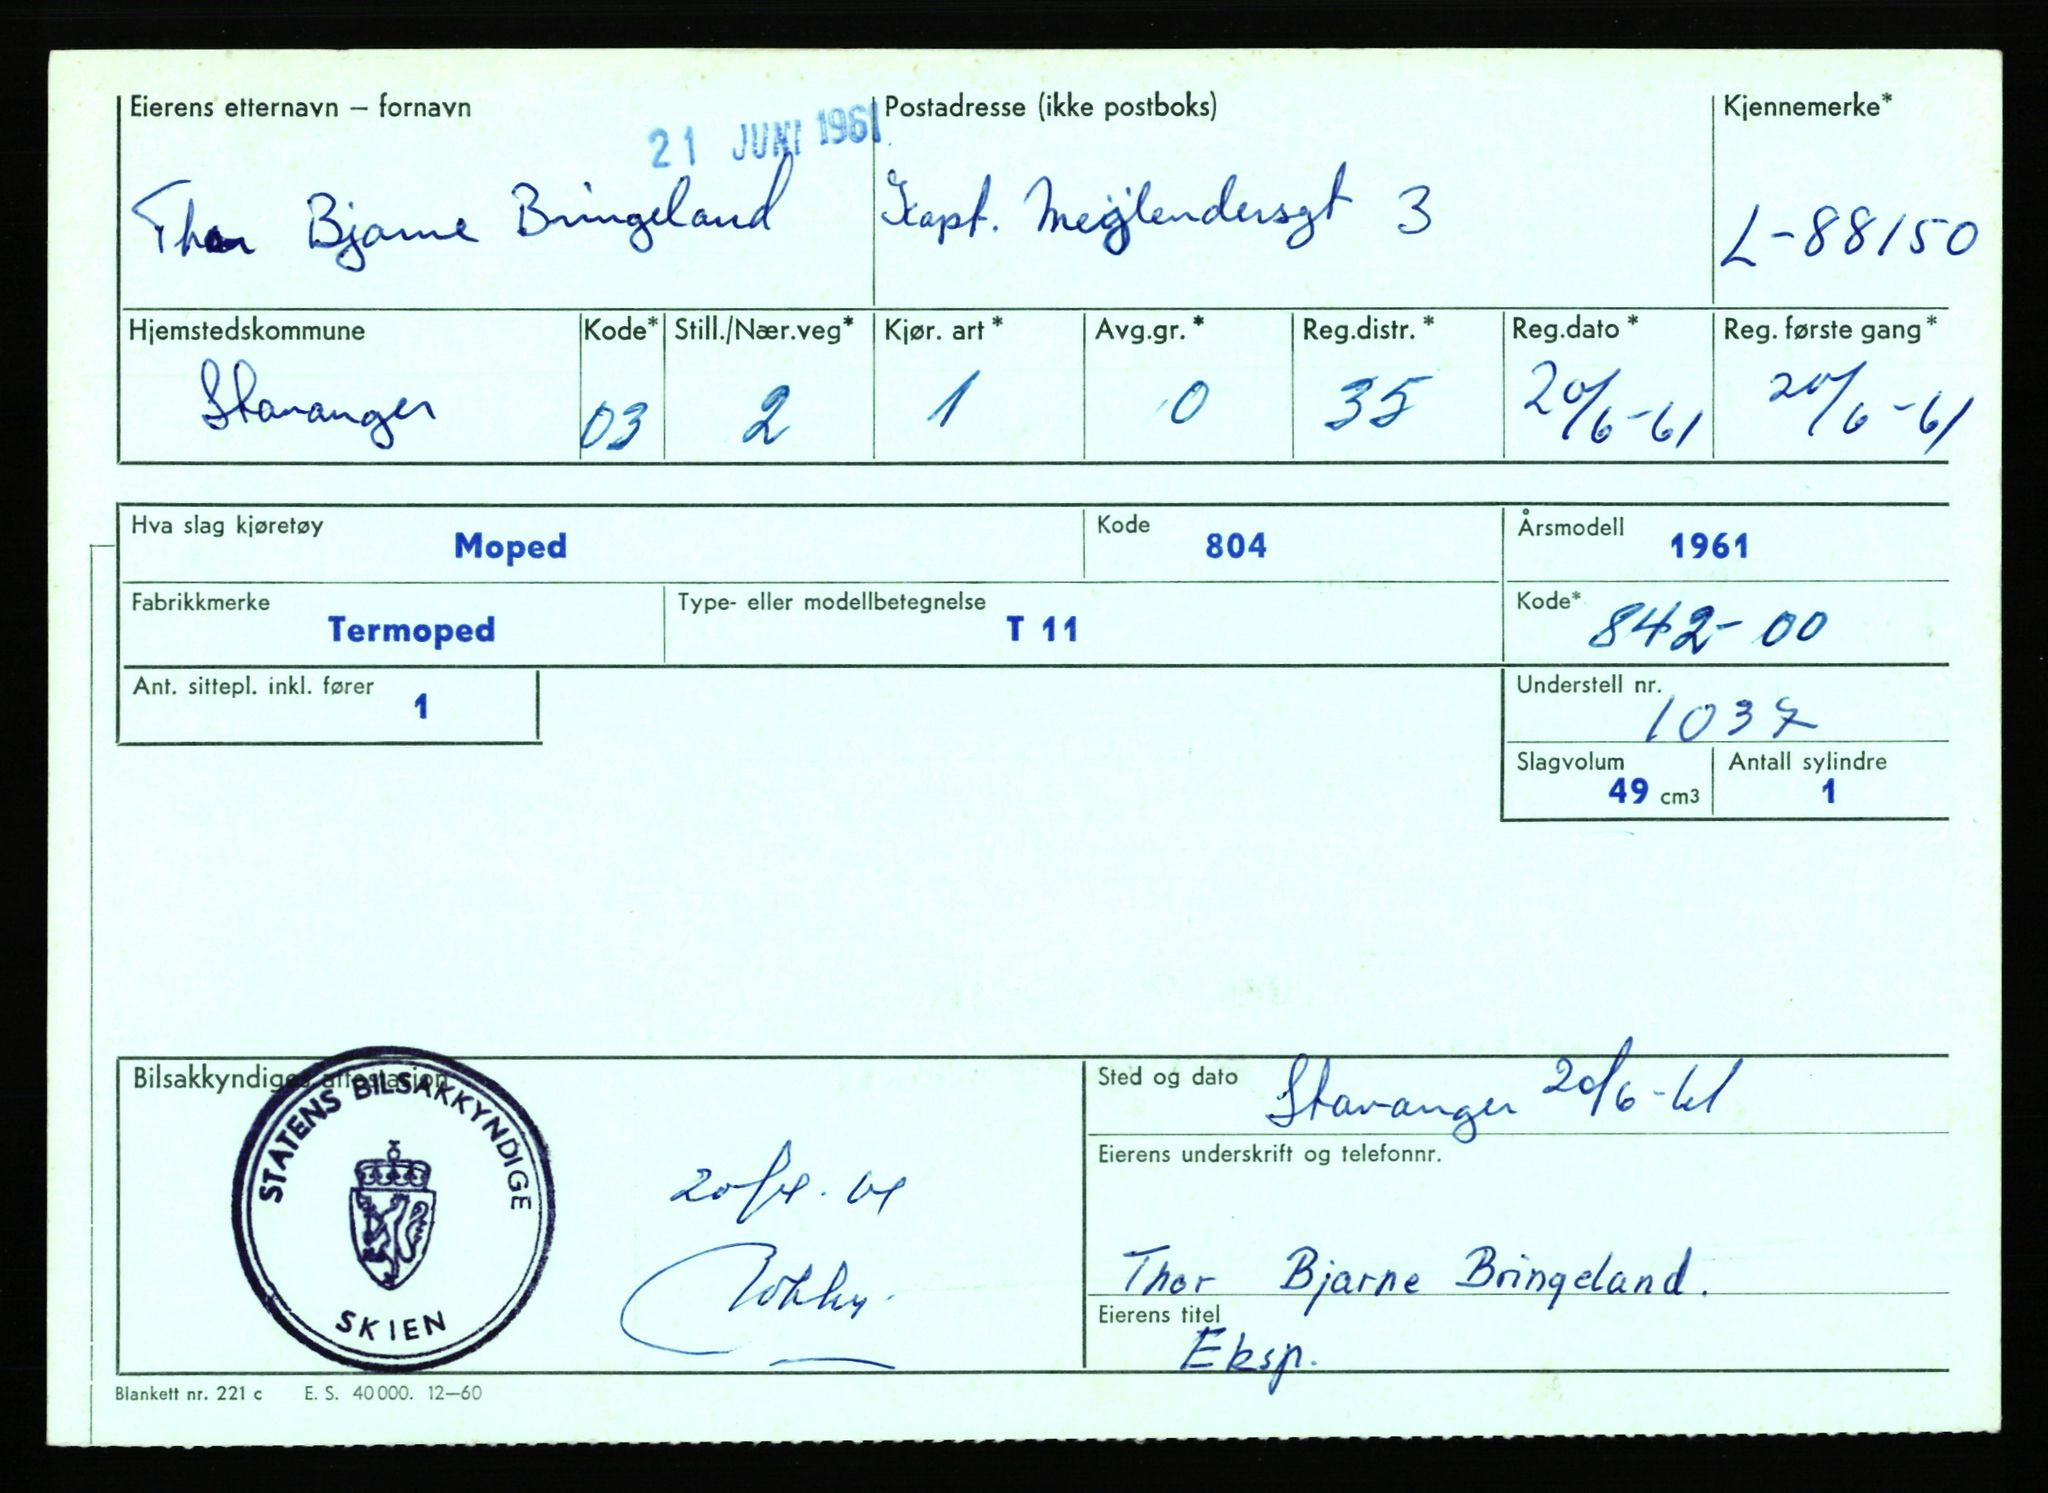 Eierens etternavn – fornavn
21 JUNI 1961
Postadresse (ikke postboks)
Kjennemerke*
Thor Bjarne Bringeland
Kapt. Meijlendersgt 3
L-88150
Hjemstedskommune
Kode*
Still./Nær.veg*
Kjør. art*
Avg.gr.*
Reg.distr.*
Reg.dato*
Reg. første gang*
Stavanger
03
2
1
0
35
20/6-61
20/6-61
Hva slag kjøretøy
Moped
Kode
804
Årsmodell
1961
Fabrikkmerke
Termoped
Type- eller modellbetegnelse
T 11
Kode*
842-00
Ant. sittepl. inkl. fører
1
Understell nr.
1037
Slagvolum
49 cm3
Antall sylindre
1
Bilsakkyndiges attestasjon
STATENS BILSAKKYNDIGE
SKIEN
Sted og dato
Stavanger 20/6-61
Eierens underskrift og telefonnr.
Thor Bjarne Bringeland.
Eierens titel
Eksp.
Blankett nr. 221 c E. S. 40000. 12–60